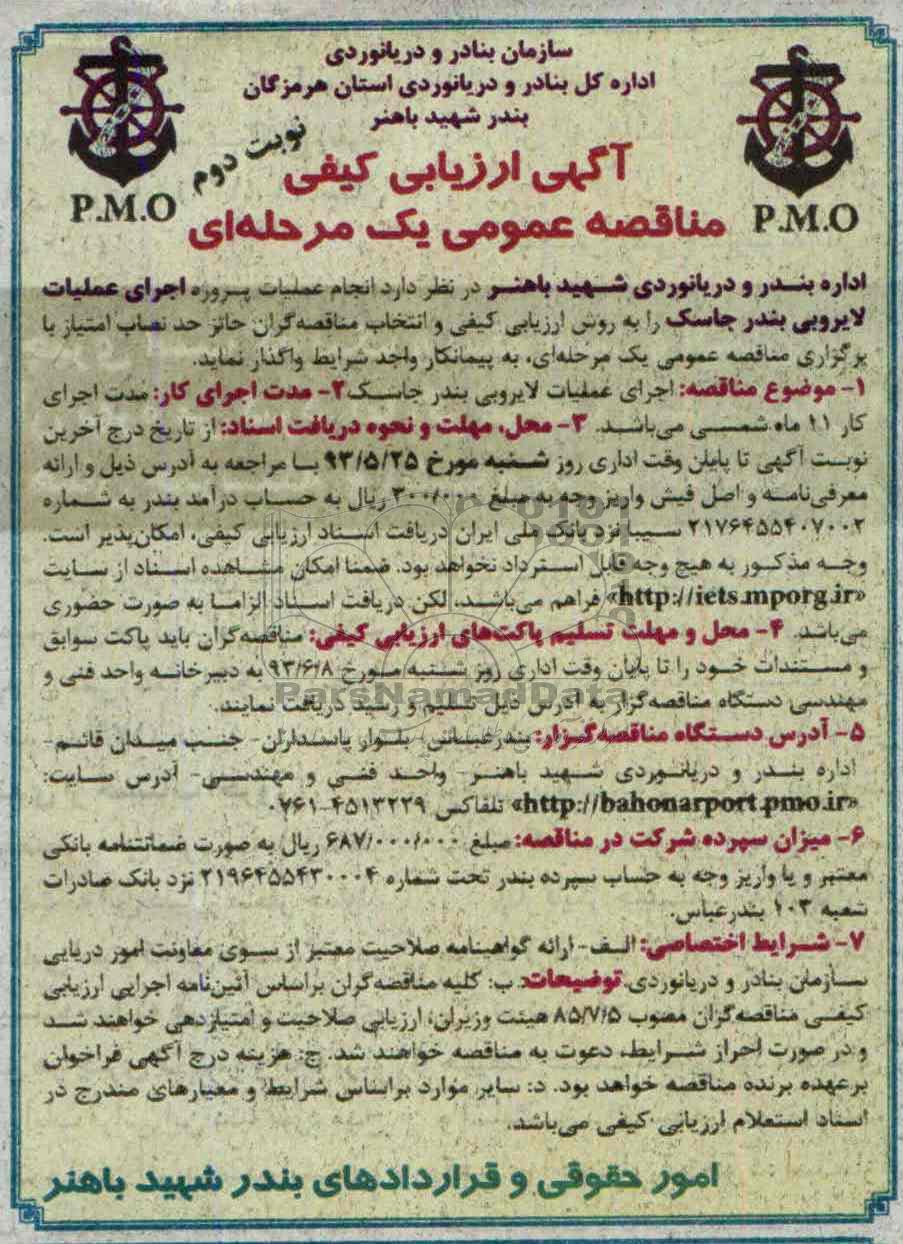 سازمان بنادر و دریانوردی
اداره کل بنادر و دریانوردی استان هرمزگان
بندر شهید باهنر
نوبت دوم
آگهی ارزیابی کیفی
مناقصه عمومی یک مرحله‌ای
P.M.O
P.M.O
اداره بندر و دریانوردی شهید باهنر در نظر دارد انجام عملیات پروژه اجرای عملیات
لایروبی بندر جاسک را به روش ارزیابی کیفی و انتخاب مناقصه‌گران حائز حد نصاب امتیاز با
برگزاری مناقصه عمومی یک مرحله‌ای، به پیمانکار واجد شرایط واگذار نماید.
۱- موضوع مناقصه: اجرای عملیات لایروبی بندر جاسک ۲- مدت اجرای کار: مدت اجرای
کار ۱۱ ماه شمسی می‌باشد. ۳- محل، مهلت و نحوه دریافت اسناد: از تاریخ درج آخرین
نوبت آگهی تا پایان وقت اداری روز شنبه مورخ ۹۳/۵/۲۵ با مراجعه به آدرس ذیل و ارائه
معرفی‌نامه و اصل فیش واریز وجه به مبلغ ۳۰۰/۰۰۰ ریال به حساب درآمد بندر به شماره
۲۱۷۶۴۵۵۴۰۷۰۰۲ سیبا نزد بانک ملی ایران دریافت اسناد ارزیابی کیفی، امکان‌پذیر است.
وجه مذکور به هیچ وجه قابل استرداد نخواهد بود. ضمنا امکان مشاهده اسناد از سایت
«http://iets.mporg.ir» فراهم می‌باشد، لکن دریافت اسناد الزاما به صورت حضوری
می‌باشد. ۴- محل و مهلت تسلیم پاکت‌های ارزیابی کیفی: مناقصه‌گران باید پاکت سوابق
و مستندات خود را تا پایان وقت اداری روز شنبه مورخ ۹۳/۶/۸ به دبیرخانه واحد فنی و
مهندسی دستگاه مناقصه‌گزار به آدرس ذیل تسلیم و رسید دریافت نمایند.
ParsNamadData
۵- آدرس دستگاه مناقصه‌گزار: بندرعباس- بلوار پاسداران- جنب میدان قائم-
اداره بندر و دریانوردی شهید باهنر- واحد فنی و مهندسی- آدرس سایت:
«http://bahonarport.pmo.ir» تلفاکس ۴۵۱۳۲۲۹-۰۷۶۱
۶- میزان سپرده شرکت در مناقصه: مبلغ ۶۸۷/۰۰۰/۰۰۰ ریال به صورت ضمانتنامه بانکی
معتبر و یا واریز وجه به حساب سپرده بندر تحت شماره ۲۱۹۶۴۵۵۴۳۰۰۰۴ نزد بانک صادرات
شعبه ۱۰۳ بندرعباس.
۷- شرایط اختصاصی: الف- ارائه گواهینامه صلاحیت معتبر از سوی معاونت امور دریایی
سازمان بنادر و دریانوردی. توضیحات: ب: کلیه مناقصه‌گران براساس آئین‌نامه اجرایی ارزیابی
کیفی مناقصه‌گران مصوب ۸۵/۷/۵ هیئت وزیران، ارزیابی صلاحیت و امتیازدهی خواهند شد
و در صورت احراز شرایط، دعوت به مناقصه خواهند شد. ج: هزینه درج آگهی فراخوان
برعهده برنده مناقصه خواهد بود. د: سایر موارد براساس شرایط و معیارهای مندرج در
اسناد استعلام ارزیابی کیفی می‌باشد.
امور حقوقی و قراردادهای بندر شهید باهنر